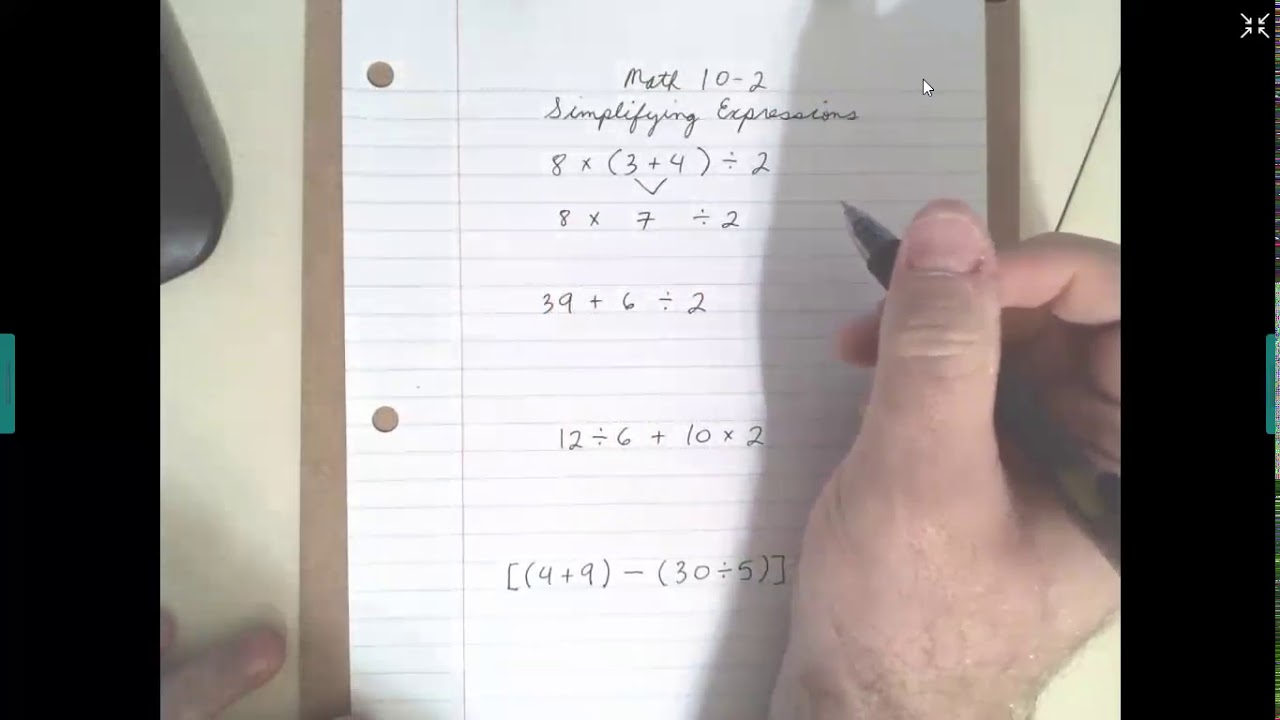 Math 10-2
Simplifying Expressions
8 × (3 + 4) ÷ 2
8 × 7 ÷ 2
39 + 6 ÷ 2
12 ÷ 6 + 10 × 2
[(4 + 9) − (30 ÷ 5)]